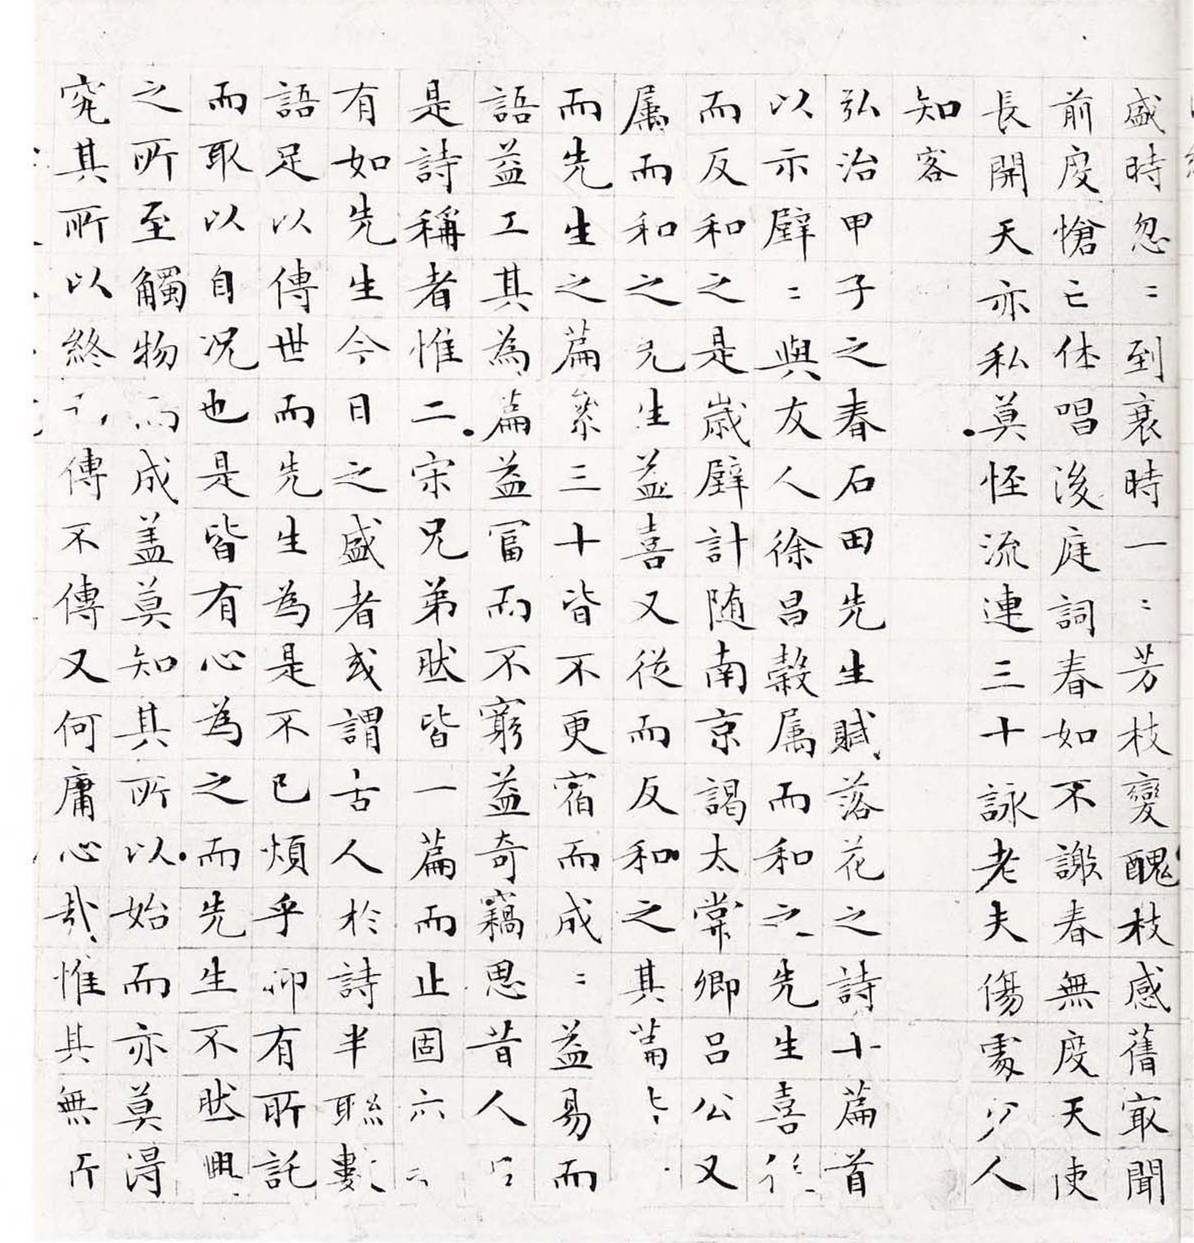 盛時忽〻到衰時一〻芳枝變醜枝感舊㝡聞
前度愴亡休唱後庭詞春如不謝春無度天使
長開天亦私莫怪流連三十詠老夫傷處少人
知客
弘治甲子之春石田先生賦落花之詩十篇首
以示璧〻與友人徐昌穀属而和之先生喜從
而反和之是歳璧計随南京謁太常卿吕公又
属而和之先生益喜又從而反和之其篇
而先生之篇絫三十皆不更宿而成〻益易而
語益工其為篇益冨而不窮益奇竊思昔人
是詩稱者惟二宋兄弟然皆一篇而止固六
有如先生今日之盛者或謂古人於詩半聯數
語足以傳世而先生為是不已煩乎抑有所託
而取以自况也是皆有心為之而先生不然興
之所至觸物而成盖莫知其所以始而亦莫得
究其所以終傳不傳又何庸心哉惟其無所